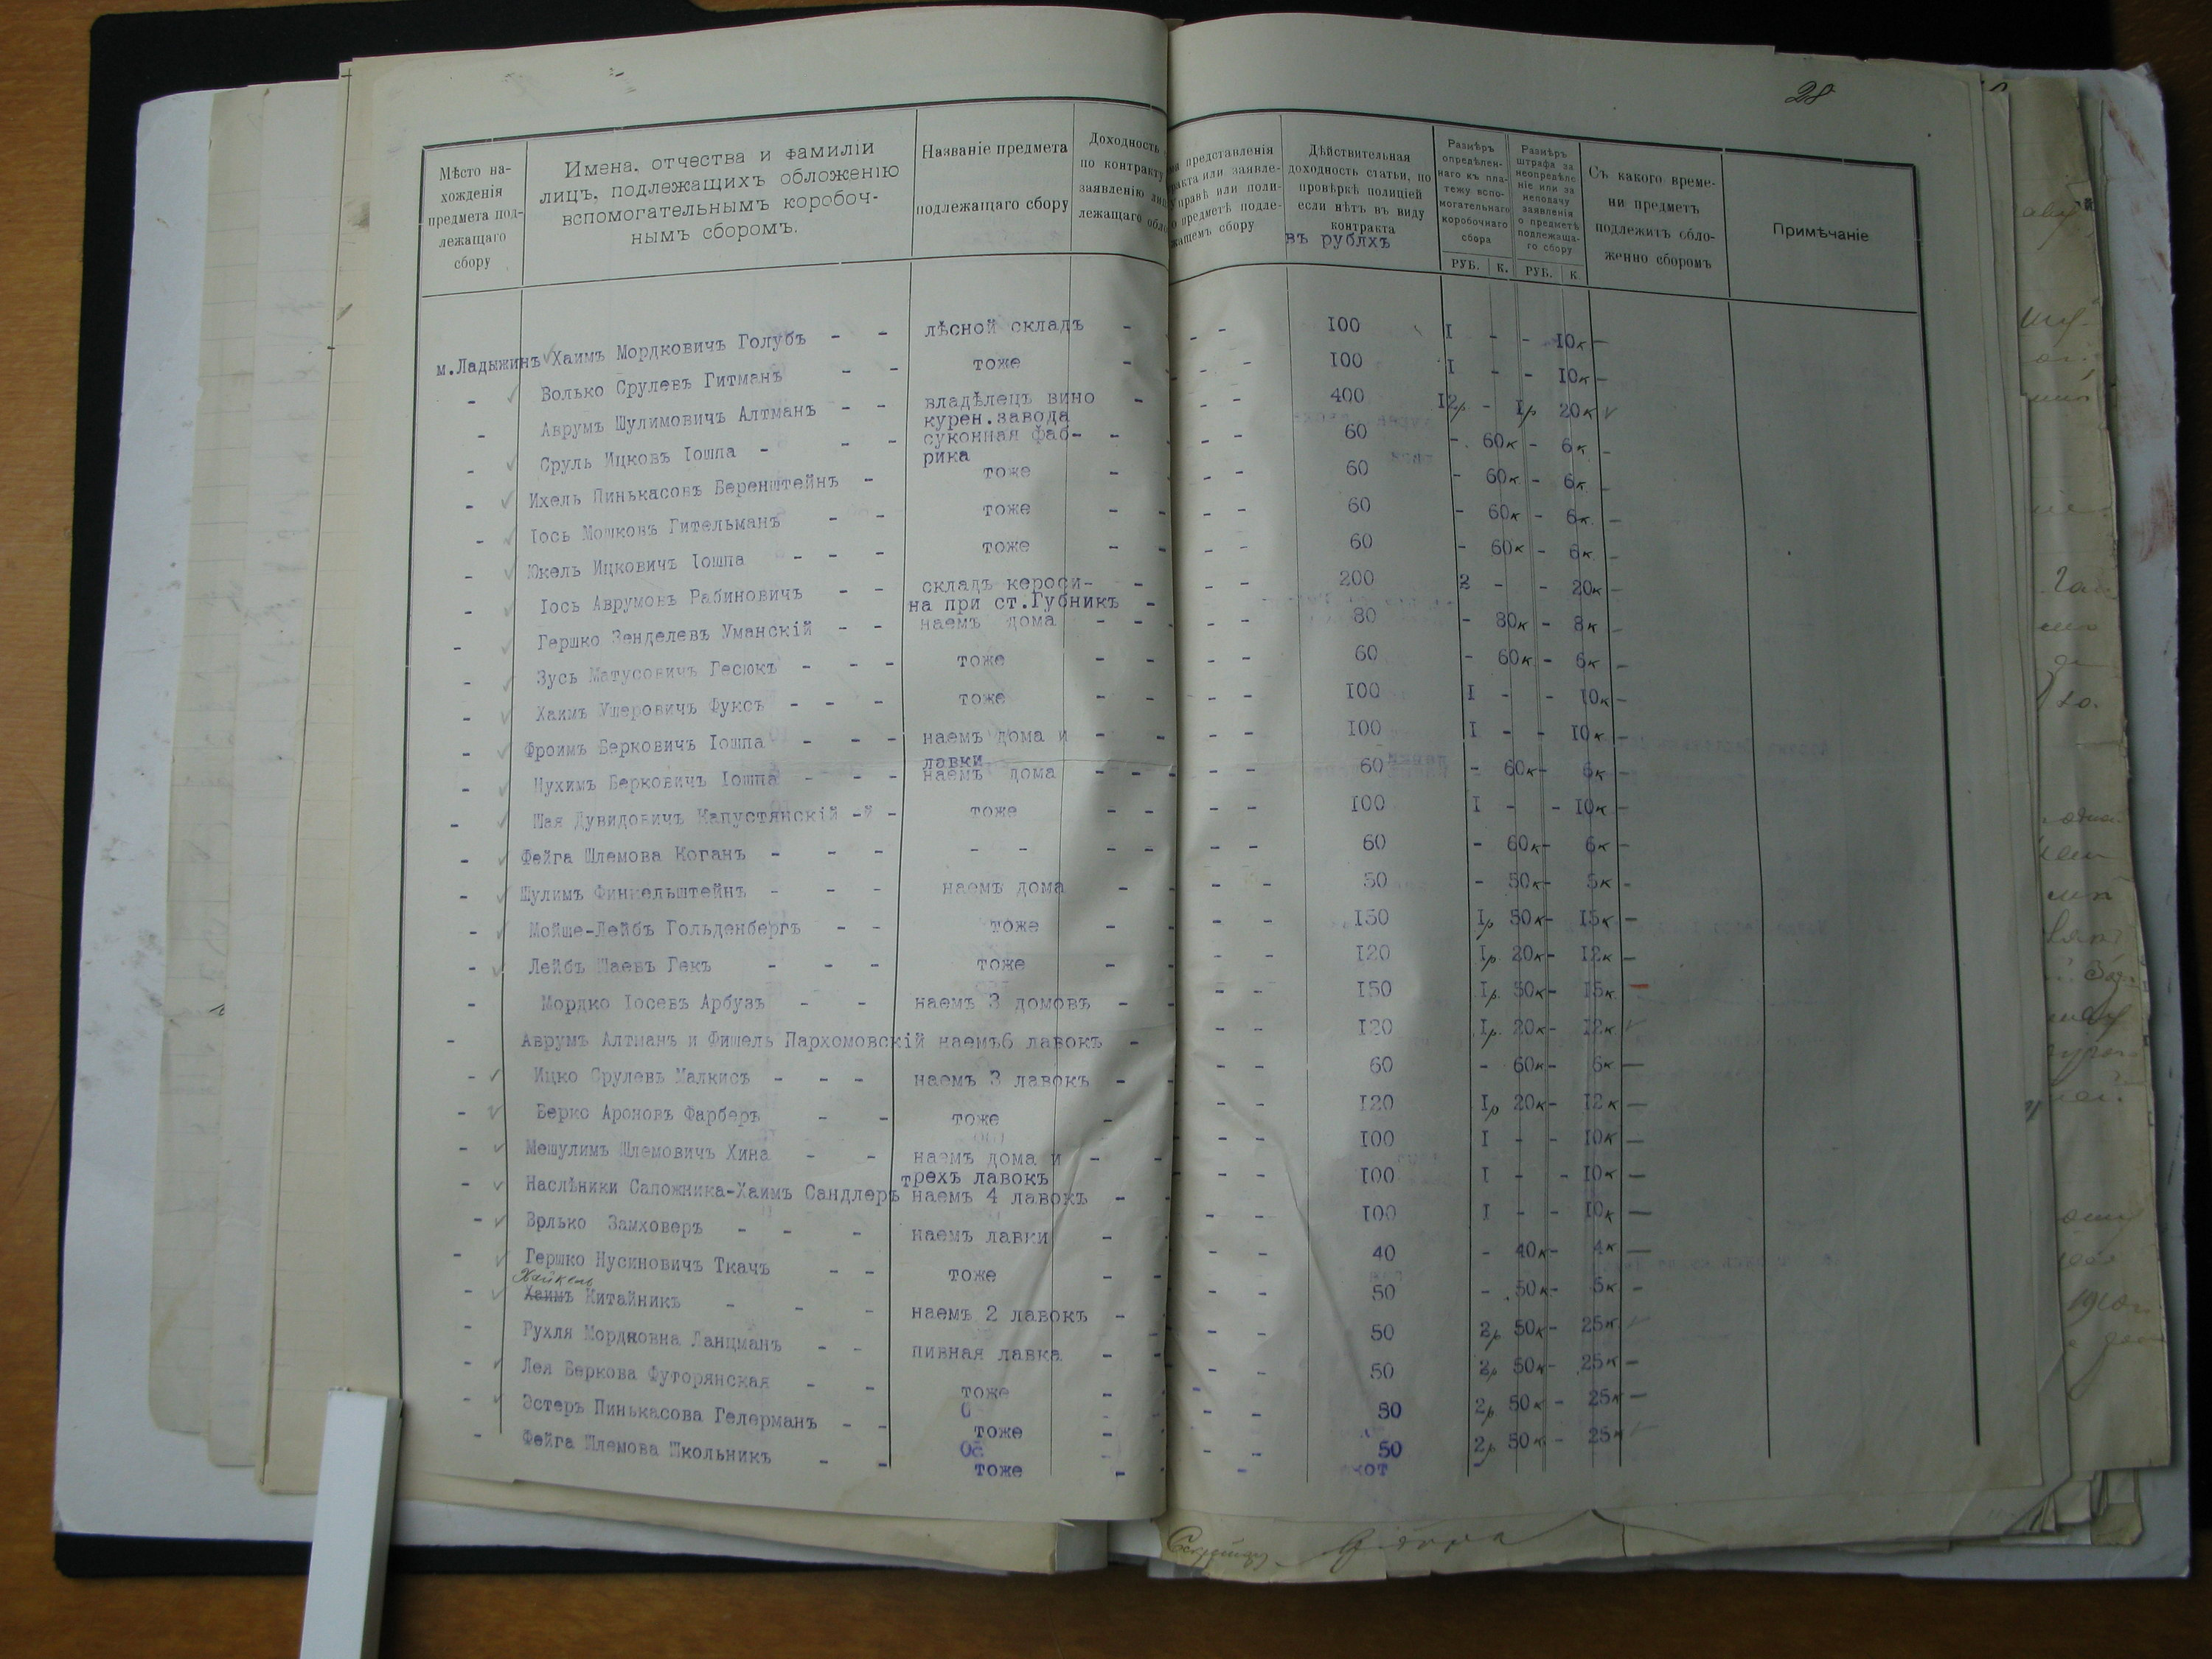 28
Мѣсто на-
хожденія
предмета под-
лежащаго
сбору
Имена, отчества и фамиліи
лицъ, подлежащихъ обложенію
вспомогательнымъ коробоч-
нымъ сборомъ.
Названіе предмета
подлежащаго сбору
Доходность
по контракту
заявленію
лежащаго
представленія
или заявле-
или поли-
предметѣ подле-
сбору
Дѣйствительная
доходность статьи, по
провѣркѣ полиціей
если нѣтъ въ виду
контракта
въ рублхъ
Размѣръ
опредѣлен-
наго къ пла-
тежу вспо-
могательнаго
коробочнаго
сбора
РУБ. К.
Размѣръ
штрафа за
неопредѣле
ніе или за
неподачу
заявленія
о предметѣ
подлежаща-
го сбору
РУБ. К
Съ какого време-
ни предметъ
подлежитъ обло-
женію сборомъ
Примѣчаніе
м.Ладыжинъ Хаимъ Мордковичъ Голубъ - - лѣсной складъ - - - 100 1 - - 10к -
- Волько Срулевъ Гитманъ - - тоже - - - 100 1 - - 10к -
- Аврумъ Шулимовичъ Алтманъ - - владѣлецъ вино - - - 400 12р - 1р 20к
курен.завода
- Сруль Ицковъ Іошпа - - - суконная фаб- - - - - 60 - 60к - 6к -
рика
- Ихель Пинькасовъ Беренштейнъ - тоже - - - - 60 - 60к - 6к -
- Іось Мошковъ Гительманъ - - тоже - - - - 60 - 60к - 6к -
- Юкель Ицковичъ Іошпа - - - тоже - - - - 60 - 60к - 6к -
- Іось Аврумовъ Рабиновичъ - - складъ кероси- - - - 200 2 - - 20к -
на при ст.Губникъ -
- Гершко Зенделевъ Уманскій - - наемъ дома - - - - 80 - 80к - 8к -
- Зусь Матусовичъ Гесюкъ - - - тоже - - - - 60 - 60к - 6к -
- Хаимъ Ушеровичъ Фуксъ - - - тоже - - - - 100 1 - - 10к -
- Фроимъ Берковичъ Іошпа - - - наемъ дома и - - - - 100 1 - - 10к -
лавки
- Нухимъ Берковичъ Іошпа - - - наемъ дома - - - - 60 - 60к - 6к -
- Шая Дувидовичъ Капустянскій - - тоже - - - - 100 1 - - 10к -
- Фейга Шлемова Коганъ - - - - - - - - - 60 - 60к - 6к -
- Шулимъ Финкельштейнъ - - - наемъ дома - - - - 50 - 50к - 5к -
- Мойше-Лейбъ Гольденбергъ - - тоже - - - - 150 1р 50к - 15к -
- Лейбъ Шаевъ Гекъ - - - тоже - - - - 120 1р 20к - 12к -
- Мордко Іосевъ Арбузъ - - наемъ 3 домовъ - - - - 150 1р 50к - 15к -
- Аврумъ Алтманъ и Фишель Пархомовскій наемъ6 лавокъ - - - 120 1р 20к - 12к
- Ицко Срулевъ Малкисъ - - - наемъ 3 лавокъ - - - - 60 - 60к - 6к -
- Берко Ароновъ Фарберъ - - тоже - - - 120 1р 20к - 12к -
- Мешулимъ Шлемовичъ Хина - - наемъ дома и - - - - 100 1 - - 10к -
трехъ лавокъ
- Наслѣники Сапожника-Хаимъ Сандлеръ наемъ 4 лавокъ - - - - 100 1 - - 10к -
- Зрлько Замховеръ - - - наемъ лавки - - - 100 1 - - 10к -
- Гершко Нусиновичъ Ткачъ - - тоже - - - - 40 - 40к - 4к -
Хайкель
- Хаимъ Китайникъ - - - наемъ 2 лавокъ - - - 50 - 50к - 5к -
- Рухля Мордковна Ланцманъ - - пивная лавка - - - - 50 2р 50к - 25к
- Лея Беркова Футорянская - - тоже - - - 50 2р 50к - 25к -
- Эстеръ Пинькасова Гелерманъ - - тоже - - - 50 2р 50к - 25к -
- Фейга Шлемова Школьникъ - - тоже - - - 50 2р 50к - 25к